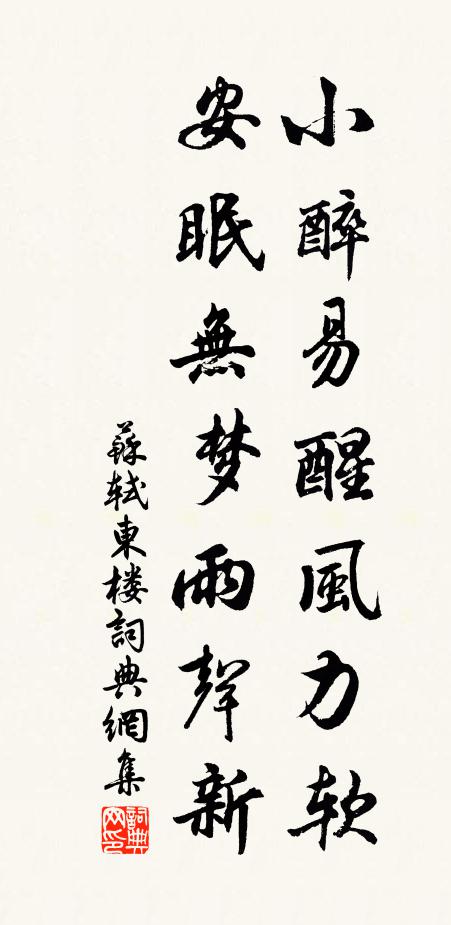 小醉易醒風力软
安眠無梦雨聲新
蘇軾東楼詞典網集
詞典
网印